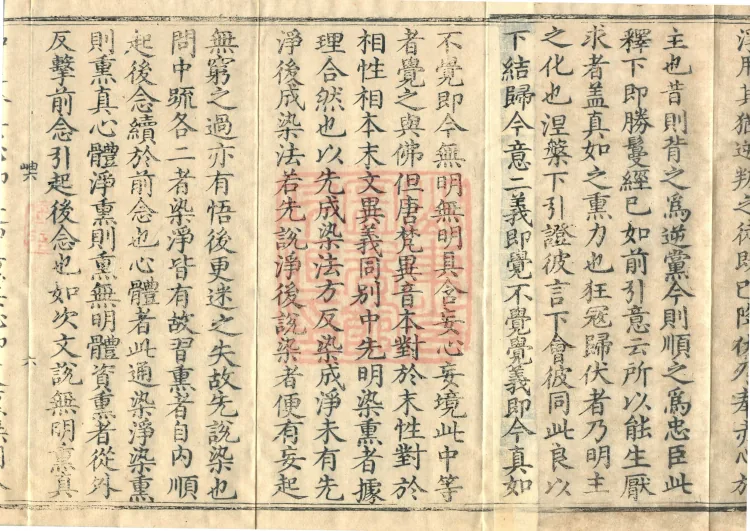 主也昔則背之為逆黨今則順之為忠臣此
釋下即勝鬘經已如前引意云所以能生厭
求者盖真如之熏力也狂寇歸伏者乃明主
之化也涅槃下引證彼言下會彼同此良以
下結歸今意二義即覺不覺覺義即今真如
不覺即今無明無明具含妄心妄境此中等
者覺之與佛但唐梵異音本對於末性對於
相性相本末文異義同別中先明染熏者據
理合然也以先成染法方反染成淨未有先
淨後成染法若先說淨後說染者便有妄起
無窮之過亦有悟後更迷之失故先說染也
問中號各二者染淨皆有故習熏者自內順
起後念續於前念也心體者此通染淨染熏
則熏真心體淨熏則熏無明體資熏者從外
反擊前念引起後念也如次文說無明熏真
六